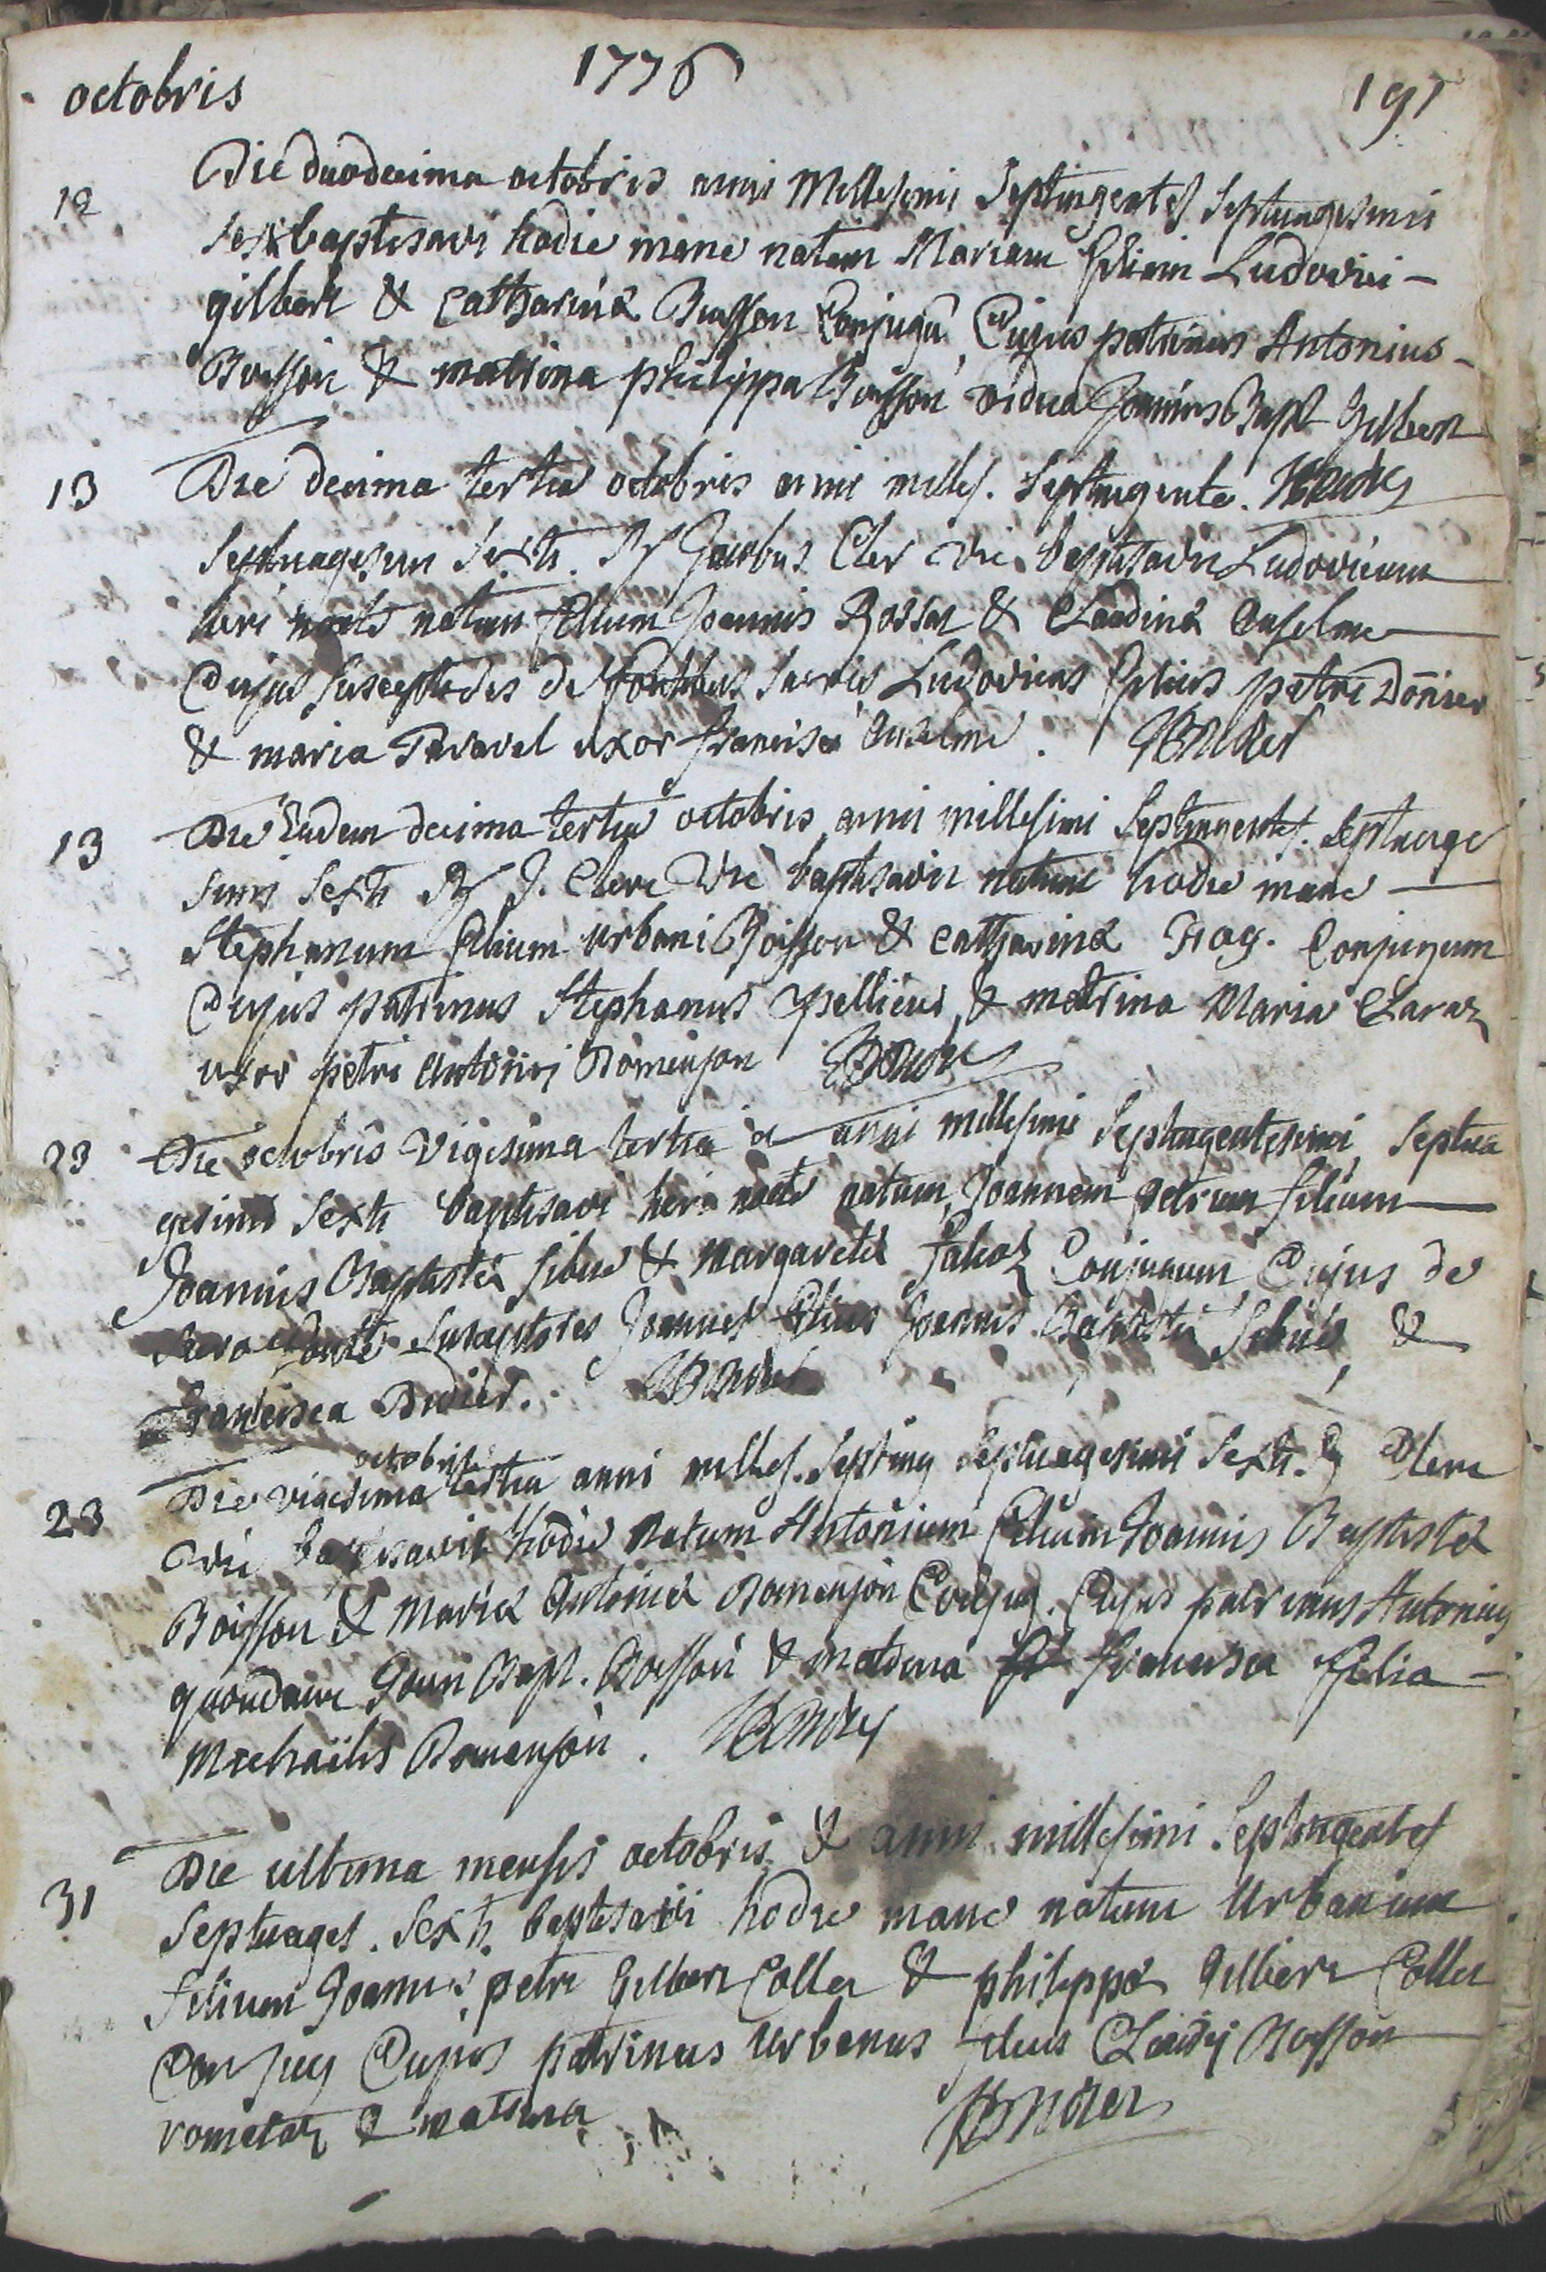 octobris 1776 191
12 Die duodecima octobris anni Millesimi Septingentes Septuagesimi
Sexti baptisavi hodie mane natam Mariam filiam Ludovici -
gilbert & Catharinæ Buisson Conjugū, Cujus patrinus Antonius -
Boisson & matrina philippa Boisson vidua Joannis Bapt Gilbert
13 Die decima tertia octobris anni milles. Septingente.
Septuagesim Sexti. R Jacobus Cler vic. baptisavit Ludovicum
heri nocte natum filium Joannis Rossat & Claudinæ Anselme
Cujus Susceptores de fontibus Sacris Ludovicus filius petri Donier
& maria Taravel uxor francisci Anselme.
13 Die Eadem decima tertia octobris anni millesimi Septingentes. Septuage
simi Sexti R J. Clere Vic baptisavit natum hodie mane
Stephanum filium Urbani Boisson & Catharinæ Conjugum
Cujus patrinus Stephanus pellicier, & matrina Maria Claraz
uxor petri Antonii Domenjon
23 Die octobris Vigesima tertia a anni millesimi Septingentesimi Septua
gesimi Sexti baptisavi heri nocte natum, Joannem petrum filium
Joannis Baptistæ Sibue & Margaretæ falcoz Conjugum Cujus de
Sacro fonte Susceptores Joannes filius Joannis Baptistæ Sibue, &
francisca Didier.
23 Die vigesima octobris tertia anni milles. Septing Septuagesimi Sexti. Clere
vic baptisavit hodie natum Antonium filium Joannis Baptistæ
Boisson & Mariæ Antoniæ Domenjon Conjug. Cujus patrinus Antonius
quondam Joan Bapt. Boisson & matrina francisca filia -
Michaelis Domenjon.
31 Die ultima mensis octobris & anni millesimi Septingentes
Septuages. Sexti. baptisavi hodie mane natum Urbanum
filium Joannis, petri Gilbert Collet & philippæ Gilbert Collet
Conjug Cujus patrinus Urbanus filius Claudii Boisson
rometaz & matrina